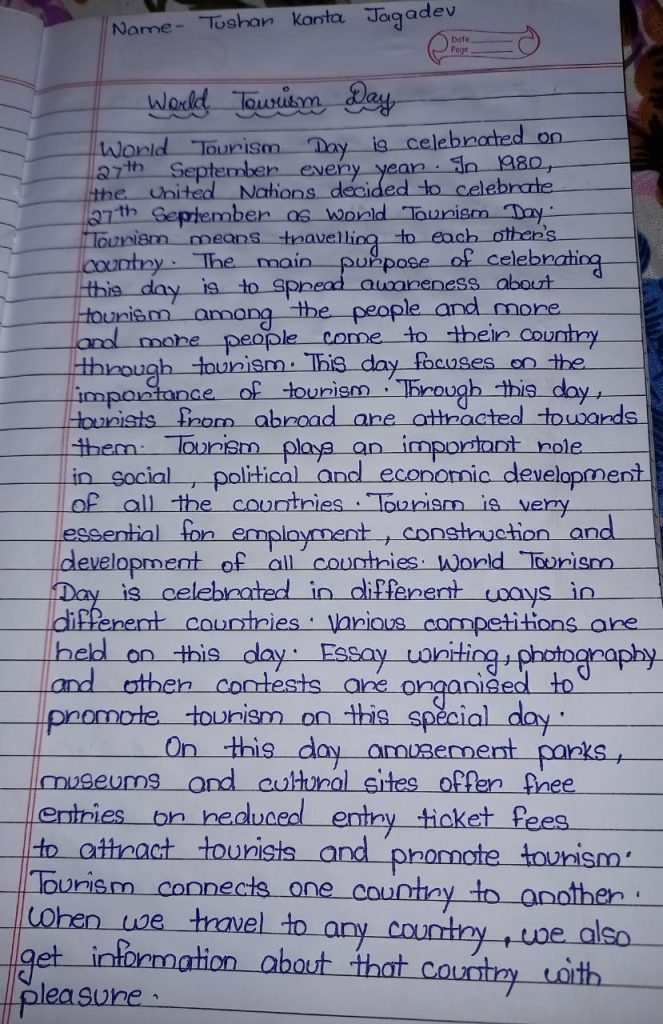 Name- Tushar Kanta Jagadev
Date
Page
World Tourism Day
World Tourism Day is celebrated on
27th September every year. In 1980,
the United Nations decided to celebrate
27th September as World Tourism Day.
Tourism means travelling to each other's
country. The main purpose of celebrating
this day is to spread awareness about
tourism among the people and more
and more people come to their country
through tourism. This day focuses on the
importance of tourism. Through this day,
tourists from abroad are attracted towards
them. Tourism plays an important role
in social, political and economic development
of all the countries. Tourism is very
essential for employment, construction and
development of all countries. World Tourism
Day is celebrated in different ways in
different countries. Various competitions are
held on this day. Essay writing, photography
and other contests are organised to
promote tourism on this special day.
On this day amusement parks,
museums and cultural sites offer free
entries or reduced entry ticket fees
to attract tourists and promote tourism.
Tourism connects one country to another.
When we travel to any country, we also
get information about that country with
pleasure.